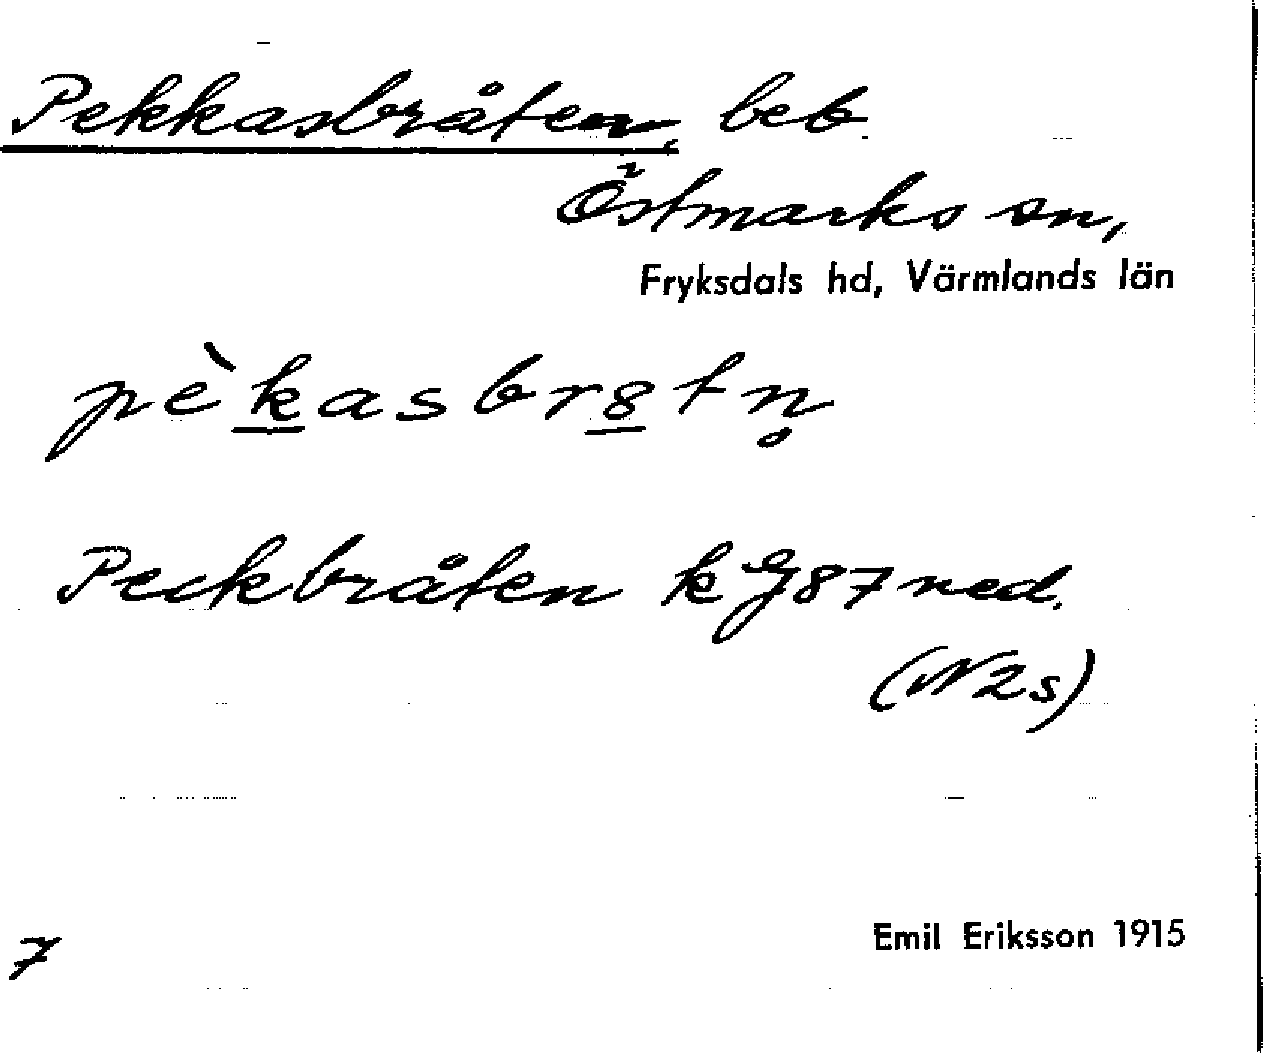 Pekkasbråten, beb
Östmarks sn,
Fryksdals hd, Värmlands län
pèkasbr8tn̥
Peckbråten k G87 ned.
(N2s)
7
Emil Eriksson 1915